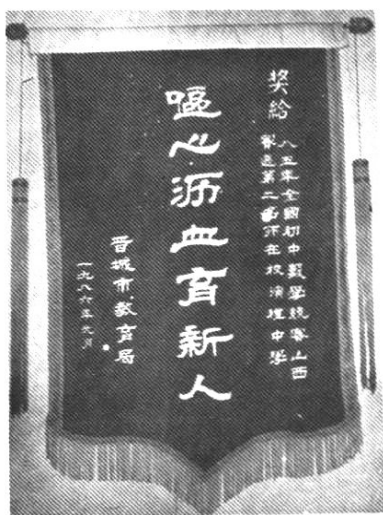 奖给
八五年全國初中數學競賽山西
賽区第二名所在校 中學
嘔心沥血育新人
晋城市教育局
一九八六年 月